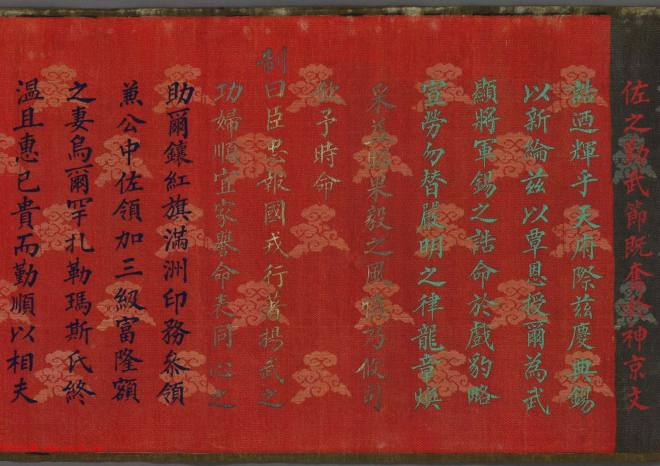 佐之勤武節既奮神京文
誥迺輝乎天府際茲慶典錫
以新綸茲以覃恩授爾為武
顯將軍錫之誥命於戲豹略
宣勞勿替嚴明之律龍章煥
采益昭果毅之風慎乃攸司
欽予時命
制曰臣忠報國戎行著揚武之
功婦順宜家譽命表同心之
助爾鑲紅旗滿洲印務叅領
兼公中佐領加三級富隆額
之妻烏爾罕扎勒瑪斯氏終
溫且惠已貴而勤順以相夫